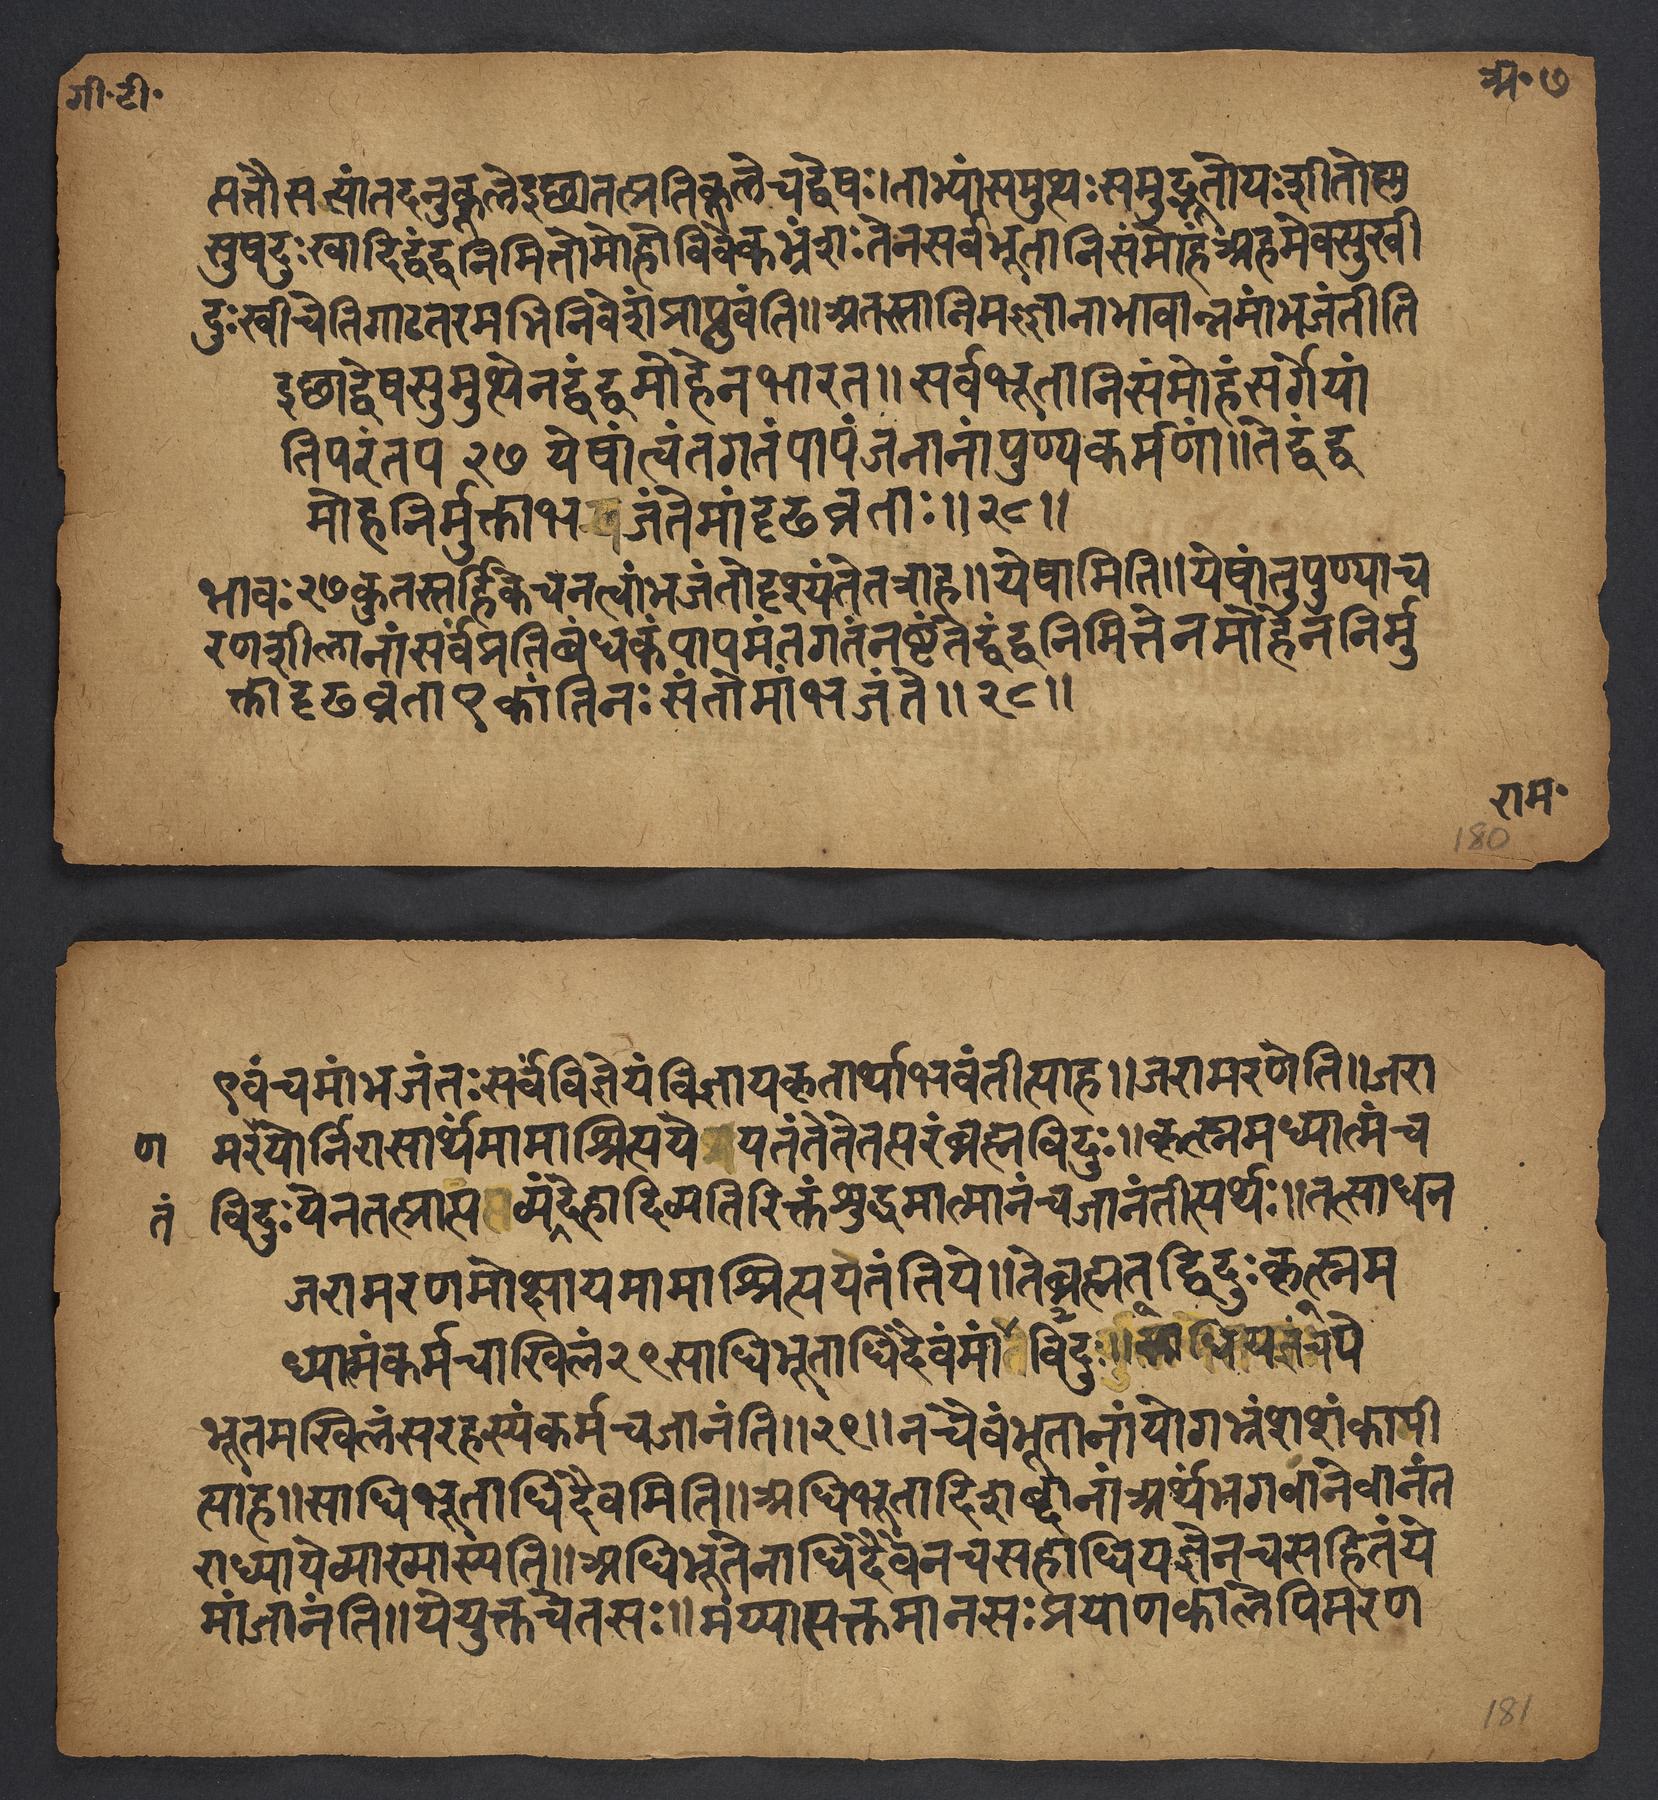 गी॰टी॰
अ॰ ७
त्पत्तौसत्यांतदनुकूलेइछातत्प्रतिकूलेचद्वेषः।ताभ्यांसमुत्थःसमुद्भूतोयःशीतोष्ण
सुषदुःखादिद्वंद्वनिमित्तोमोहोविवेकभ्रंशःतेनसर्वभूतानिसंमोहंअहमेवसुखी
दुःखीचेतिगाढतरमभिनिवेशंप्राप्नुवंति॥अतस्तानिमज्ज्ञानाभावान्नमांभजंतीति
इछाद्वेषसुमुत्थेनद्वंद्वमोहेनभारत॥सर्वभूतानिसंमोहंसर्गेयां
तिपरंतप २७ येषांत्वंतगतंपापंजनानांपुण्यकर्मणां॥तेद्वंद्व
मोहनिर्मुक्ताभजंतेमांदृढव्रताः॥२८॥
भावः२७कुतस्तर्हिकेचनत्वांभजंतोदृश्यंतेतत्राह॥येषामिति॥येषांतुपुण्याच
रणशीलानांसर्वप्रतिबंधकंपापमंतगतंनष्टंतेद्वंद्वनिमित्तेनमोहेननिर्मु
क्तादृढव्रताएकांतिनःसंतोमांभजंते॥२८॥
राम॰
180
एवंचमांभजंतःसर्वंविज्ञेयंविज्ञायकृतार्थाभवंतीत्याह॥जरामरणेति॥जरा
ण मरयोर्निरासार्थंमामाश्रित्ययेयतंतेतेतत्परंब्रह्मविदुः॥कृत्स्नमध्यात्मंच
तं विदुःयेनतत्प्राप्तव्यंदेहादिव्यतिरिक्तंशुद्धमात्मानंचजानंतीत्यर्थः॥तत्साधन
जरामरणमोक्षायमामाश्रित्ययतंतिये॥तेब्रह्मतद्विदुःकृत्स्नम
ध्यात्मंकर्मचाखिलं२९साधिभूताधिदैवंमांविदुः॥साधियज्ञंचये
भूतमखिलंसरहस्यंकर्मचजानंति॥२९॥नचैवंभूतानांयोगभ्रंशशंकापी
त्याह॥साधिभूताधिदैवमिति॥अधिभूतादिशब्दानांअर्थंभगवानेवानंत
राध्यायेव्याख्यास्यति॥अधिभूतेनाधिदैवेनचसहाधियज्ञेनचसहितंये
मांजानंति॥येयुक्तचेतसः॥मय्यासक्तमानसःप्रयाणकालेपिमरण
181